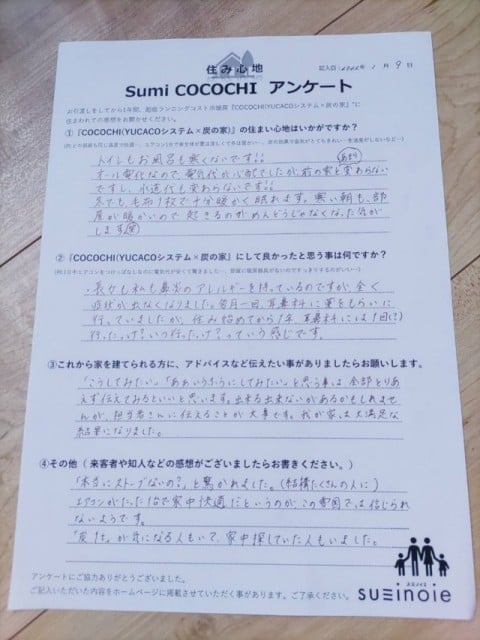 住み心地
記入日:2022年 1月 9日
Sumi COCOCHI アンケート
お引渡しをしてから1年間、超低ランニングコスト冷暖房『COCOCHI(YUCACOシステム×炭の家)』に
住まわれての感想をお聞かせください。
①『COCOCHI(YUCACOシステム×炭の家)』の住まい心地はいかがですか?
トイレもお風呂も寒くないです!!
オール電化なので、電気代が心配でしたが、前の家と変わらない
ですし、水道代も変わらないです!!
冬でも毛布1枚で十分暖かく眠れます。寒い朝も、部
屋が暖かいので起きるのがめんどうじゃなくなった気が
します(笑)
②『COCOCHI(YUCACOシステム×炭の家)』にして良かったと思う事は何ですか?
・長女も私も鼻炎のアレルギーを持っているのですが、全く
症状が出なくなりました。毎月一回、耳鼻科に薬をもらいに
行っていましたが、住み始めてから1年、耳鼻科には1回!?
行ったっけ?いつ行ったけ?っていう感じです。
③これから家を建てられる方に、アドバイスなど伝えたい事がありましたらお願いします。
「こうしてみたい」「ああいうふうにしてみたい」と思う事は、全部とりあ
えず伝えてみるといいと思います。出来る出来ないがあるかもしれませ
んが、担当者さんに伝えることが大事です。我が家は大満足な
結果になりました。
④その他(来客者や知人などの感想がございましたらお書きください。)
「本当にストーブないの?」と驚かれました。(結構たくさんの人に)
エアコンがたった1台で家中快適だというのが、この雪国では信じられ
ないようです。
「炭」が気になる人もいて、家中探していた人もいました。
アンケートにご協力ありがとうございました。
ご記入いただいた内容をホームページに掲載させていただく事があります。ご了承ください。
スミノイエ
SUMInoIE